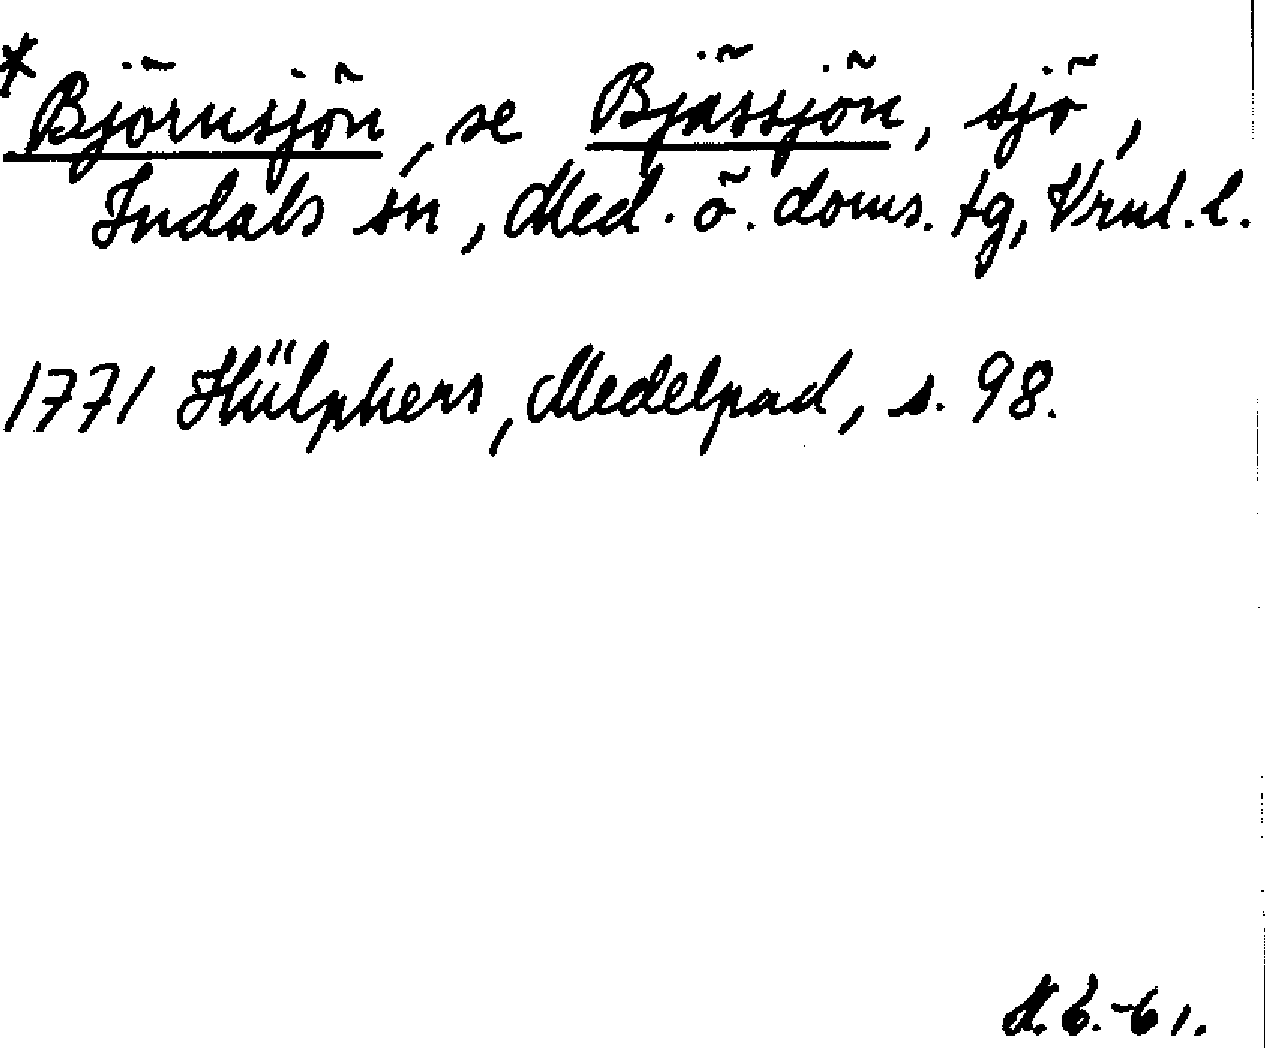 *Björnsjön, se Bjässjön, sjö,
Indals sn, Med. ö. doms. tg, Vrnl. l.
1771 Hülphers, Medelpad, s. 98.